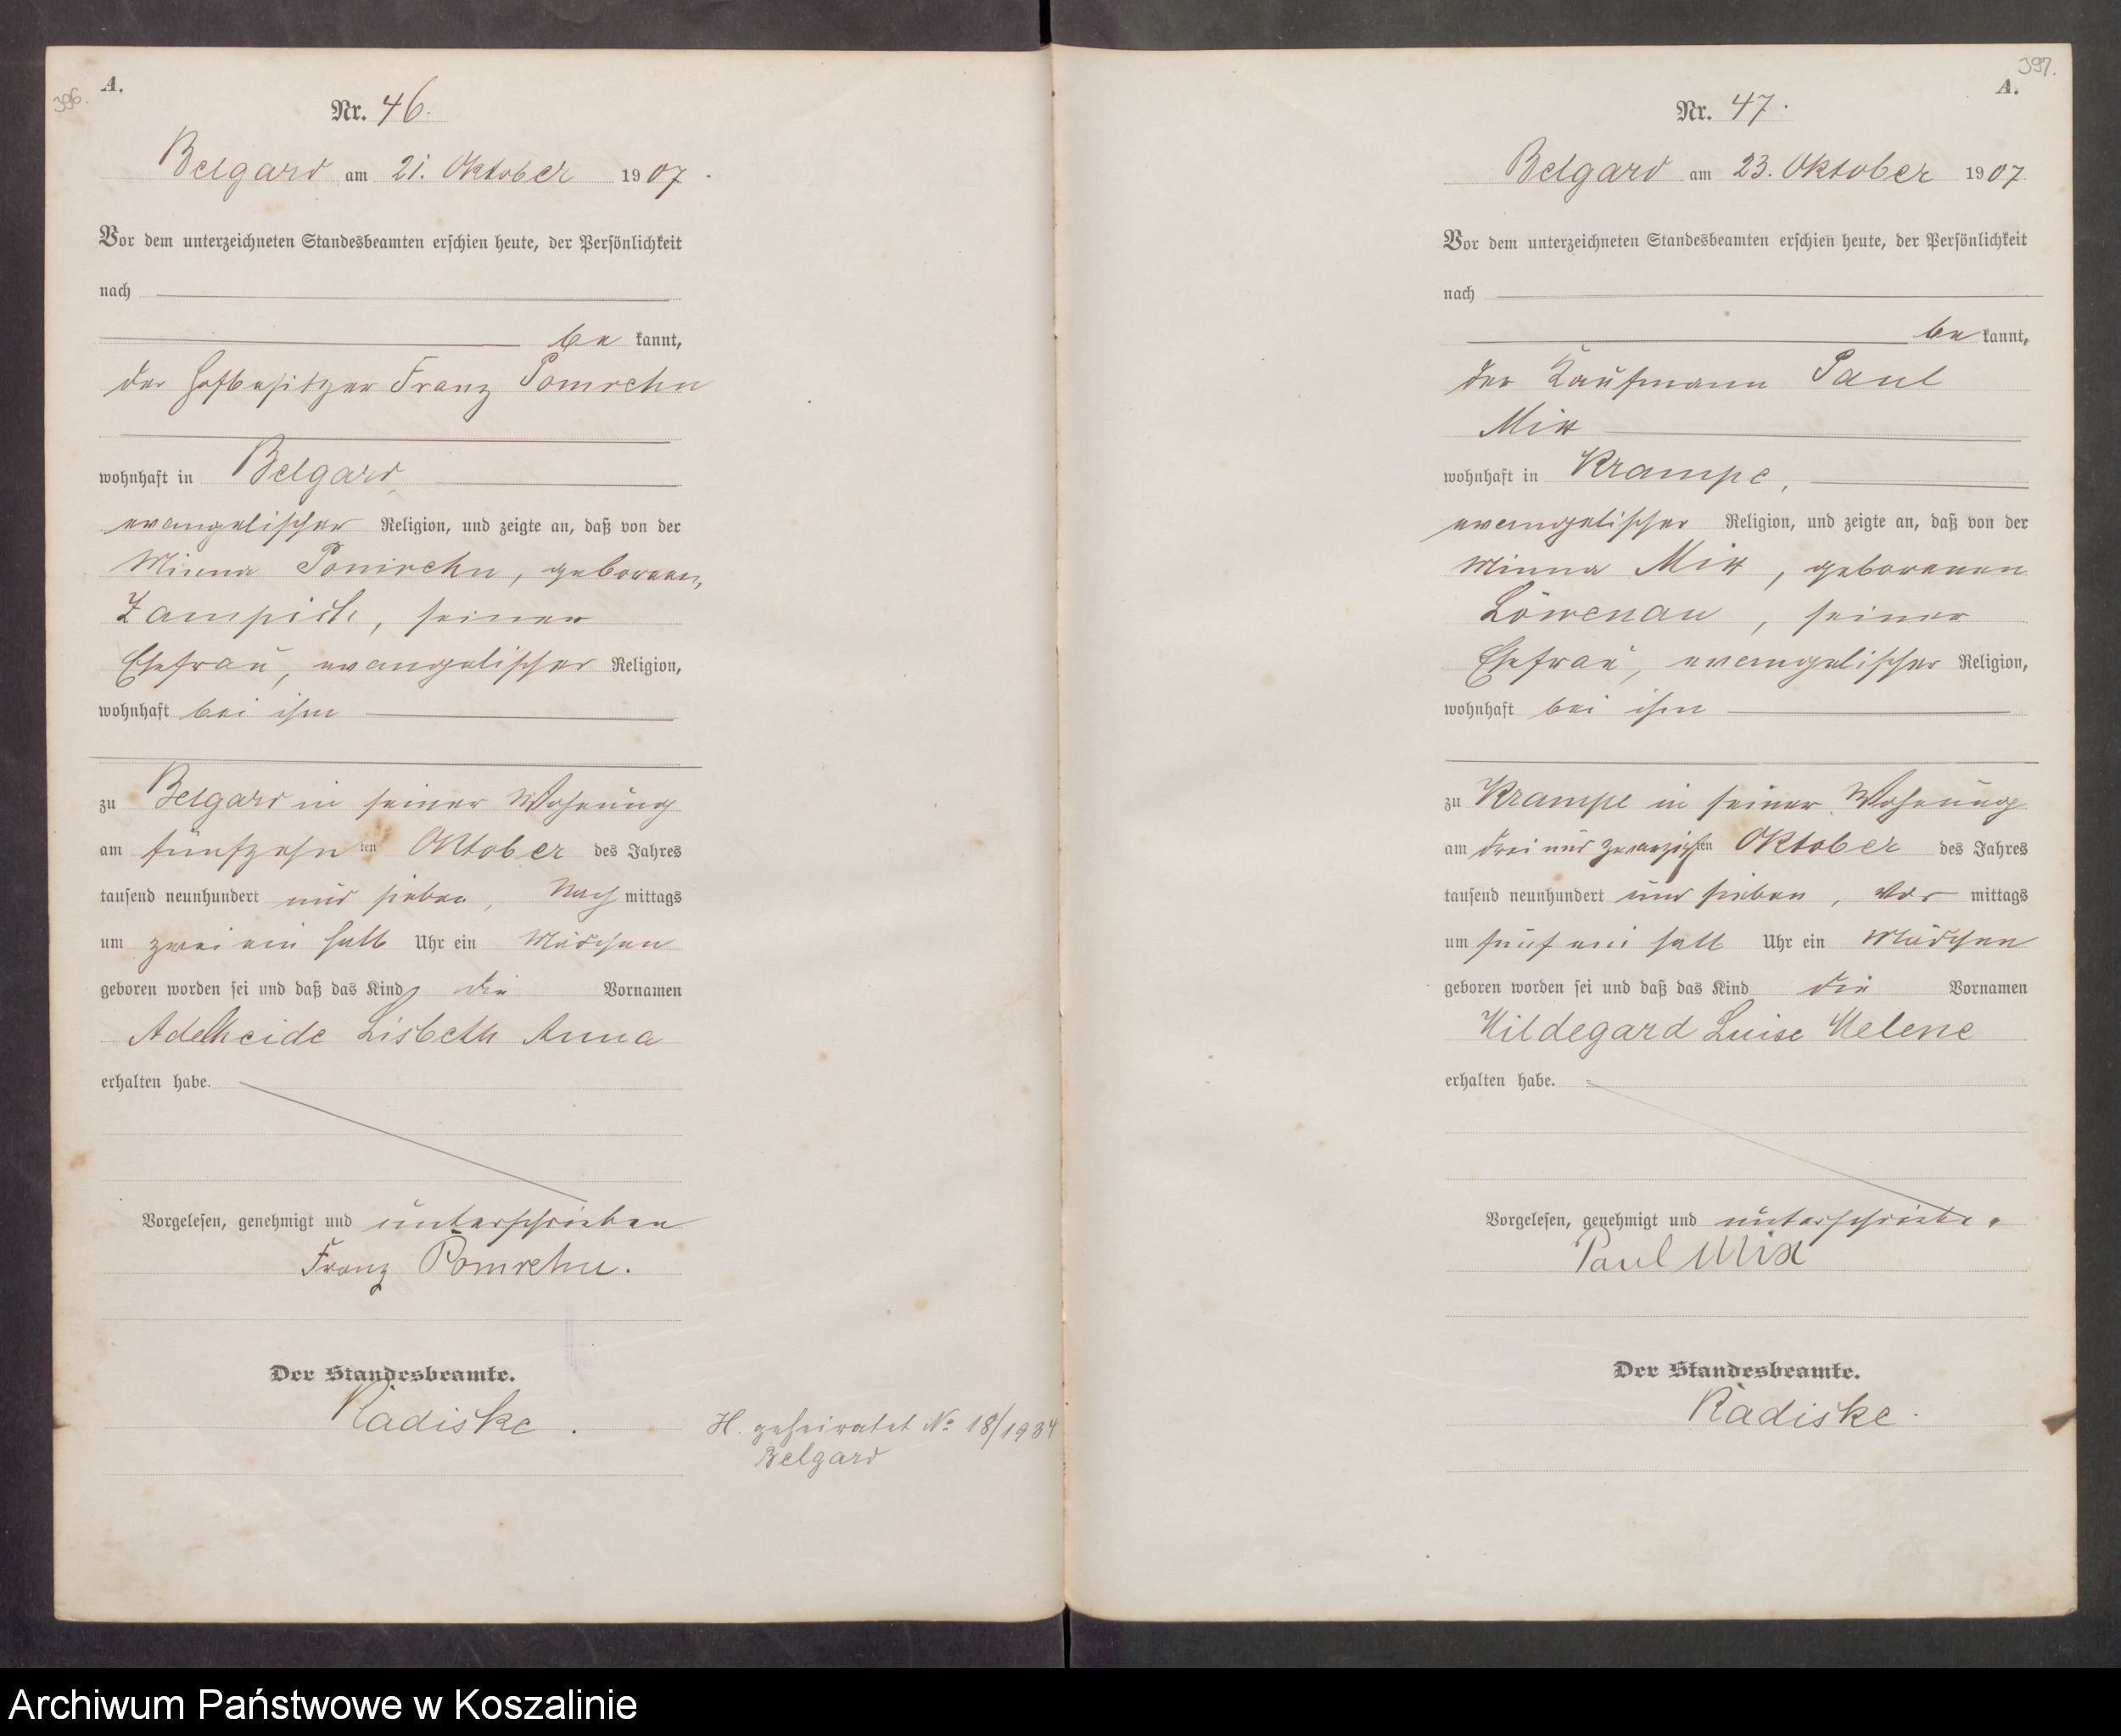 396.
A.
Nr. 46.
Belgard am 21. Oktober 1907.
Vor dem unterzeichneten Standesbeamten erschien heute, der Persönlichkeit
nach
be kannt,
der Hofbesitzer Franz Pomrehn
wohnhaft in Belgard
evangelischer Religion, und zeigte an, daß von der
Minna Pomrehn, geborenen,
seiner
Ehefrau, evangelischer Religion,
wohnhaft bei ihm
zu Belgard in seiner Wohnung
am fünfzehnten Oktober des Jahres
tausend neunhundert und sieben, Nach mittags
um zwei ein halb Uhr ein Mädchen
geboren worden sei und daß das Kind die Vornamen
Adelheide Lisbeth Anna
erhalten habe.
Vorgelesen, genehmigt und unterschrieben
Franz Pomrehn.
Der Standesbeamte.
Radiske.
H. geheiratet No 18/1934
Belgard
397.
A.
Nr. 47.
Belgard am 23. Oktober 1907
Vor dem unterzeichneten Standesbeamten erschien heute, der Persönlichkeit
nach
be kannt,
der Kaufmann Paul
Mix
wohnhaft in Krampe,
evangelischer Religion, und zeigte an, daß von der
Minna Mix, geborenen
Löwenau, seiner
Ehefrau, evangelischer Religion,
wohnhaft bei ihm
zu Krampe in seiner Wohnung
am drei und zwanzigsten Oktober des Jahres
tausend neunhundert und sieben, Vor mittags
um fünf ein halb Uhr ein Mädchen
geboren worden sei und daß das Kind die Vornamen
Hildegard Luise Helene
erhalten habe.
Vorgelesen, genehmigt und unterschrieben
Paul Mix
Der Standesbeamte.
Radiske.
Archiwum Państwowe w Koszalinie